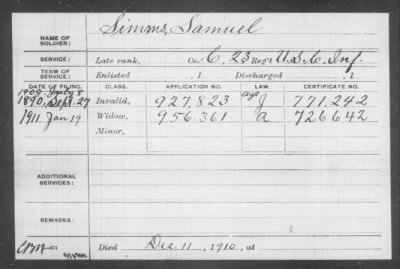 NAME OF SOLDIER: Simms, Samuel
SERVICE: Late rank, Co. C, 23 Reg't U.S.C. Inf.
TERM OF SERVICE: Enlisted , 1 Discharged , 1
DATE OF FILING. CLASS. APPLICATION NO. LAW. CERTIFICATE NO.
1908, July 8
1890, Sept. 27 Invalid, 927.823 age J 771.242
1911 Jan 19 Widow, 956.361 a 726642
Minor,
ADDITIONAL SERVICES:
REMARKS:
Died Dec 11, 1910, at